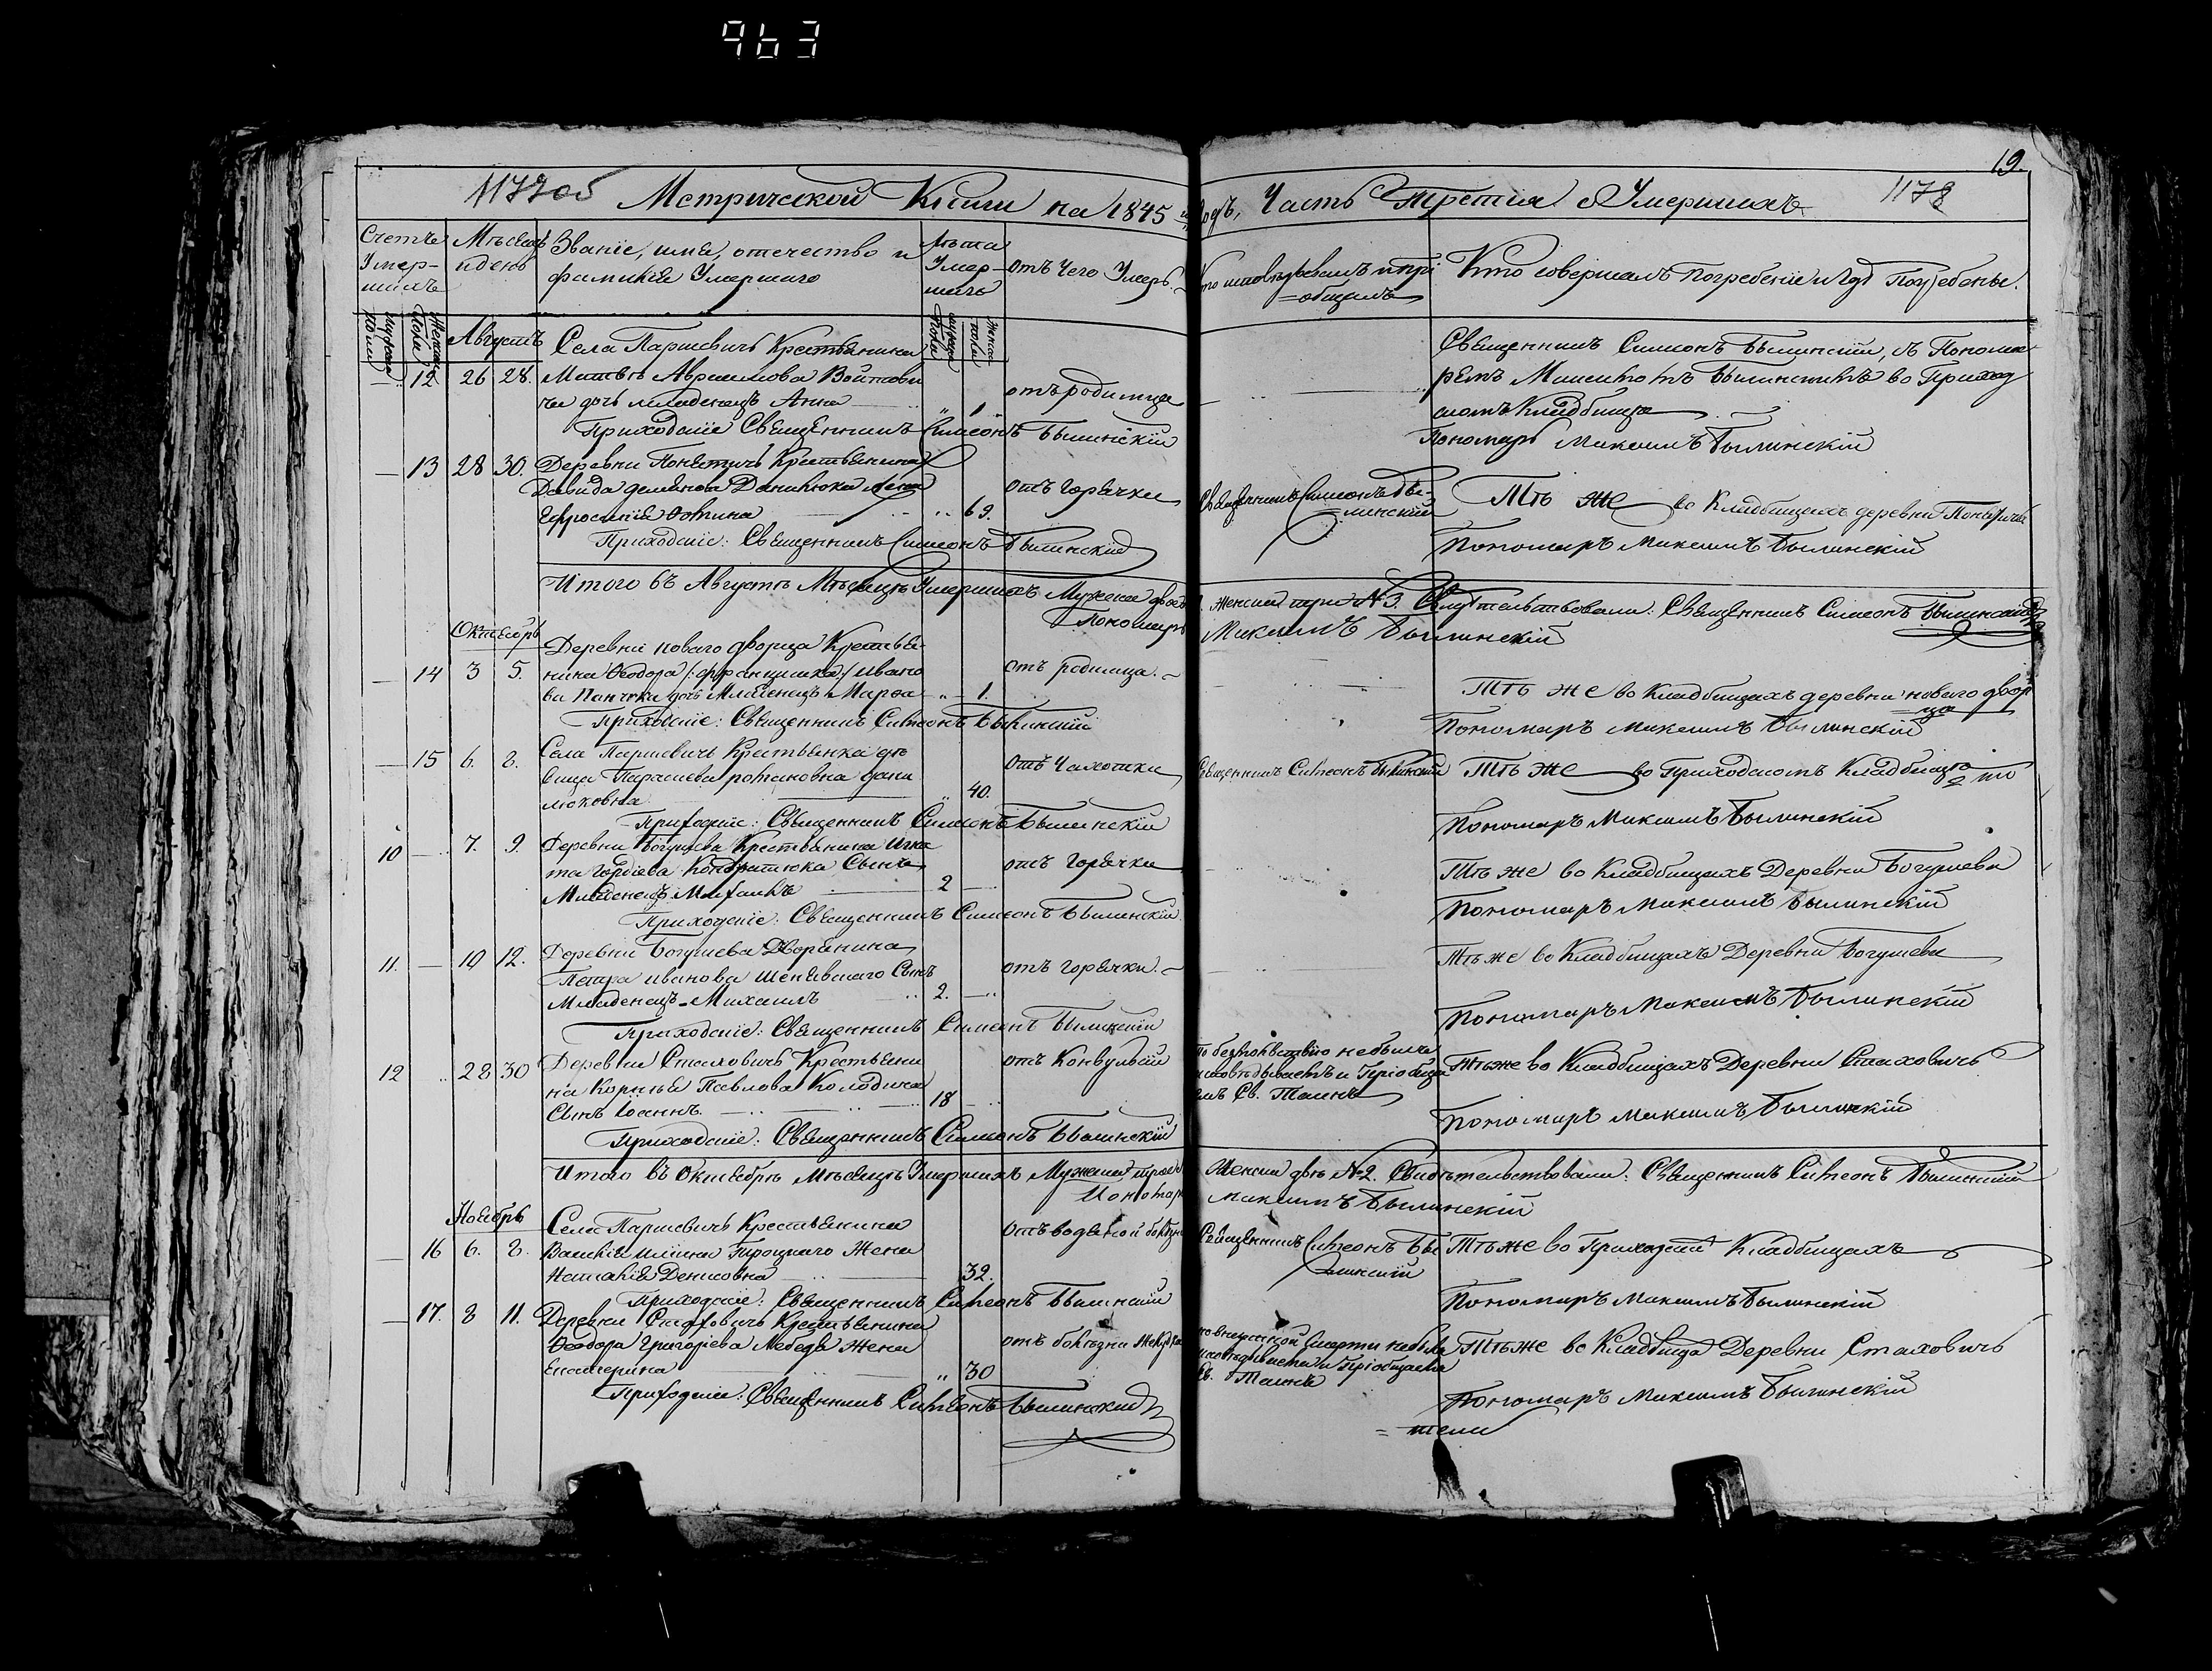 963
19.
1177 об Метрической Книги на 1845й годъ, Часть Третія О Умершихъ 1178
Счетъ Умер-шихъ
Мужеска пола
Женска пола
Мѣсяцъ и день
Званіе, имя, отечество и фамилія Умершаго
Лѣта Умер-шихъ
Мужеска пола
Женска пола
Отъ Чего Умеръ.
Кто исповѣдывалъ и прі=общалъ
Кто совершалъ погребеніе и гдѣ Погребены.
Августъ
Села Паршевичь Крестьянина
— 12 26 28. Матвѣя Аврамова Войтови
ча дочь младенецъ Анна „ 1. отъ родимца
Священникъ Симеонъ Былинскій, съ Понома
ремъ Максимомъ Былинскимъ во Приход
скомъ Кладбище
Приходскіе Священникъ Симеонъ Былинскій
Пономарь Максимъ Былинскій
— 13 28 30. Деревни Понятичь Крестьянина
Давида Данилюка жена
Ефросинія 69. отъ Горячки
Священникъ Симеонъ Бы=линскій
Тѣ же во Кладбищахъ деревни Понятичь
Приходскіе: Священникъ Симеонъ Былинскій
Пономаръ Максимъ Былинскій
Итого въ Августѣ Мѣсяцѣ Умершихъ Мужеска двое Женска три № 3. Свидѣтельствовали: Священникъ Симеонъ Былинскій
Пономаръ Максимъ Былинскій
Октябрь
Деревни новаго дворца Крестья-
— 14 3 5. нина Ѳеодора /: францишка :/ Ивано
ва дочь Младенецъ Марѳа „ 1. отъ родимца.
Тѣ же во Кладбищахъ деревни новаго двор
=ца
Приходскіе: Священникъ Симеонъ Былинскій
Пономаръ Максимъ Былинскій
— 15 6. 8. Села Паршевичь Крестьянка дѣ
вица Параскева Романовна Дани
люковна „ 40. отъ Чахотки
Священникъ Симеонъ Былинскій
Тѣ же во Приходскомъ Кладбище
Приходскіе: Священникъ Симеонъ Былинскій
Пономаръ Максимъ Былинскій
10 — 7. 9. Деревни Богушева Крестьянина Игна
та Гордіева Кондратюка Сынъ
Младенецъ Михаилъ 2 — отъ Горячки
Тѣ же во Кладбищахъ Деревни Богушева
Приходскіе: Священникъ Симеонъ Былинскій
Пономаръ Максимъ Былинскій
11. — 10 12. Деревни Богушева Дворянина
Петра Иванова Сынъ
Младенецъ Михаилъ 2. — отъ горячки.
Тѣ же во Кладбищахъ Деревни Богушева
Приходскіе: Священникъ Симеонъ Былинскій
Пономаръ Максимъ Былинскій
12 28 30 Деревни Стаховичь Крестьяни
на Корнилія Павлова Колодича
Сынъ Іоаннъ. 18 — отъ Конвульсіи
Тѣ же во Кладбищахъ Деревни Стаховичь
Св. Таинъ
Приходскіе: Священникъ Симеонъ Былинскій
Пономаръ Максимъ Былинскій
Итого въ Октябрѣ Мѣсяцѣ Умершихъ Мужеска трое Женска двѣ № 2. Свидѣтельствовали: Священникъ Симеонъ Былинскій
Пономаръ Максимъ Былинскій
Ноябрь
Села Паршевичь Крестьянина
— 16 6. 8. Василія Ильина Троцкаго Жена
Наталія Денисовна 32. отъ водяной болѣзни
Священникъ Симеонъ Бы
=линскій
Тѣ же во Приходскій Кладбищахъ
Приходскіе: Священникъ Симеонъ Былинскій
Пономаръ Максимъ Былинскій
— 17. 8 11. Деревни Стаховичь Крестьянина
Ѳеодора Григоріева Лебедя Жена
Екатерина „ 30 отъ болѣзни желудка
смерти
Св. Таинъ
Тѣ же во Кладбища Деревни Стаховичь
Приходскіе: Священникъ Симеонъ Былинскій
Пономаръ Максимъ Былинскій